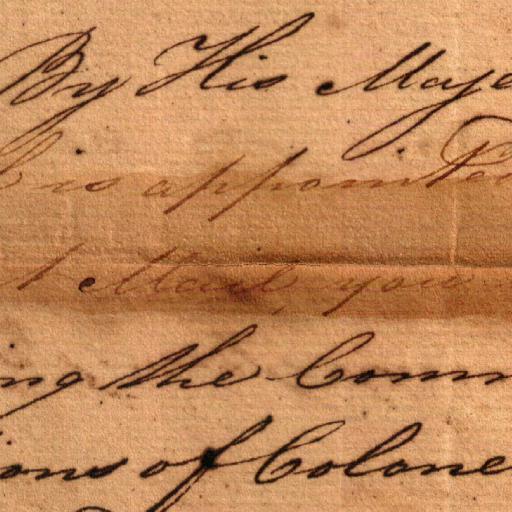 By His Maje
is appointed
t Mail, you
ing the Comm
ions of Colone